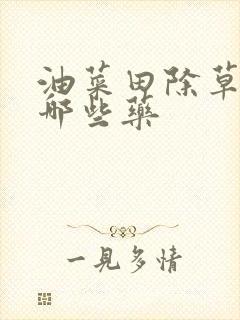 油菜田除草
哪些藥
一見多情